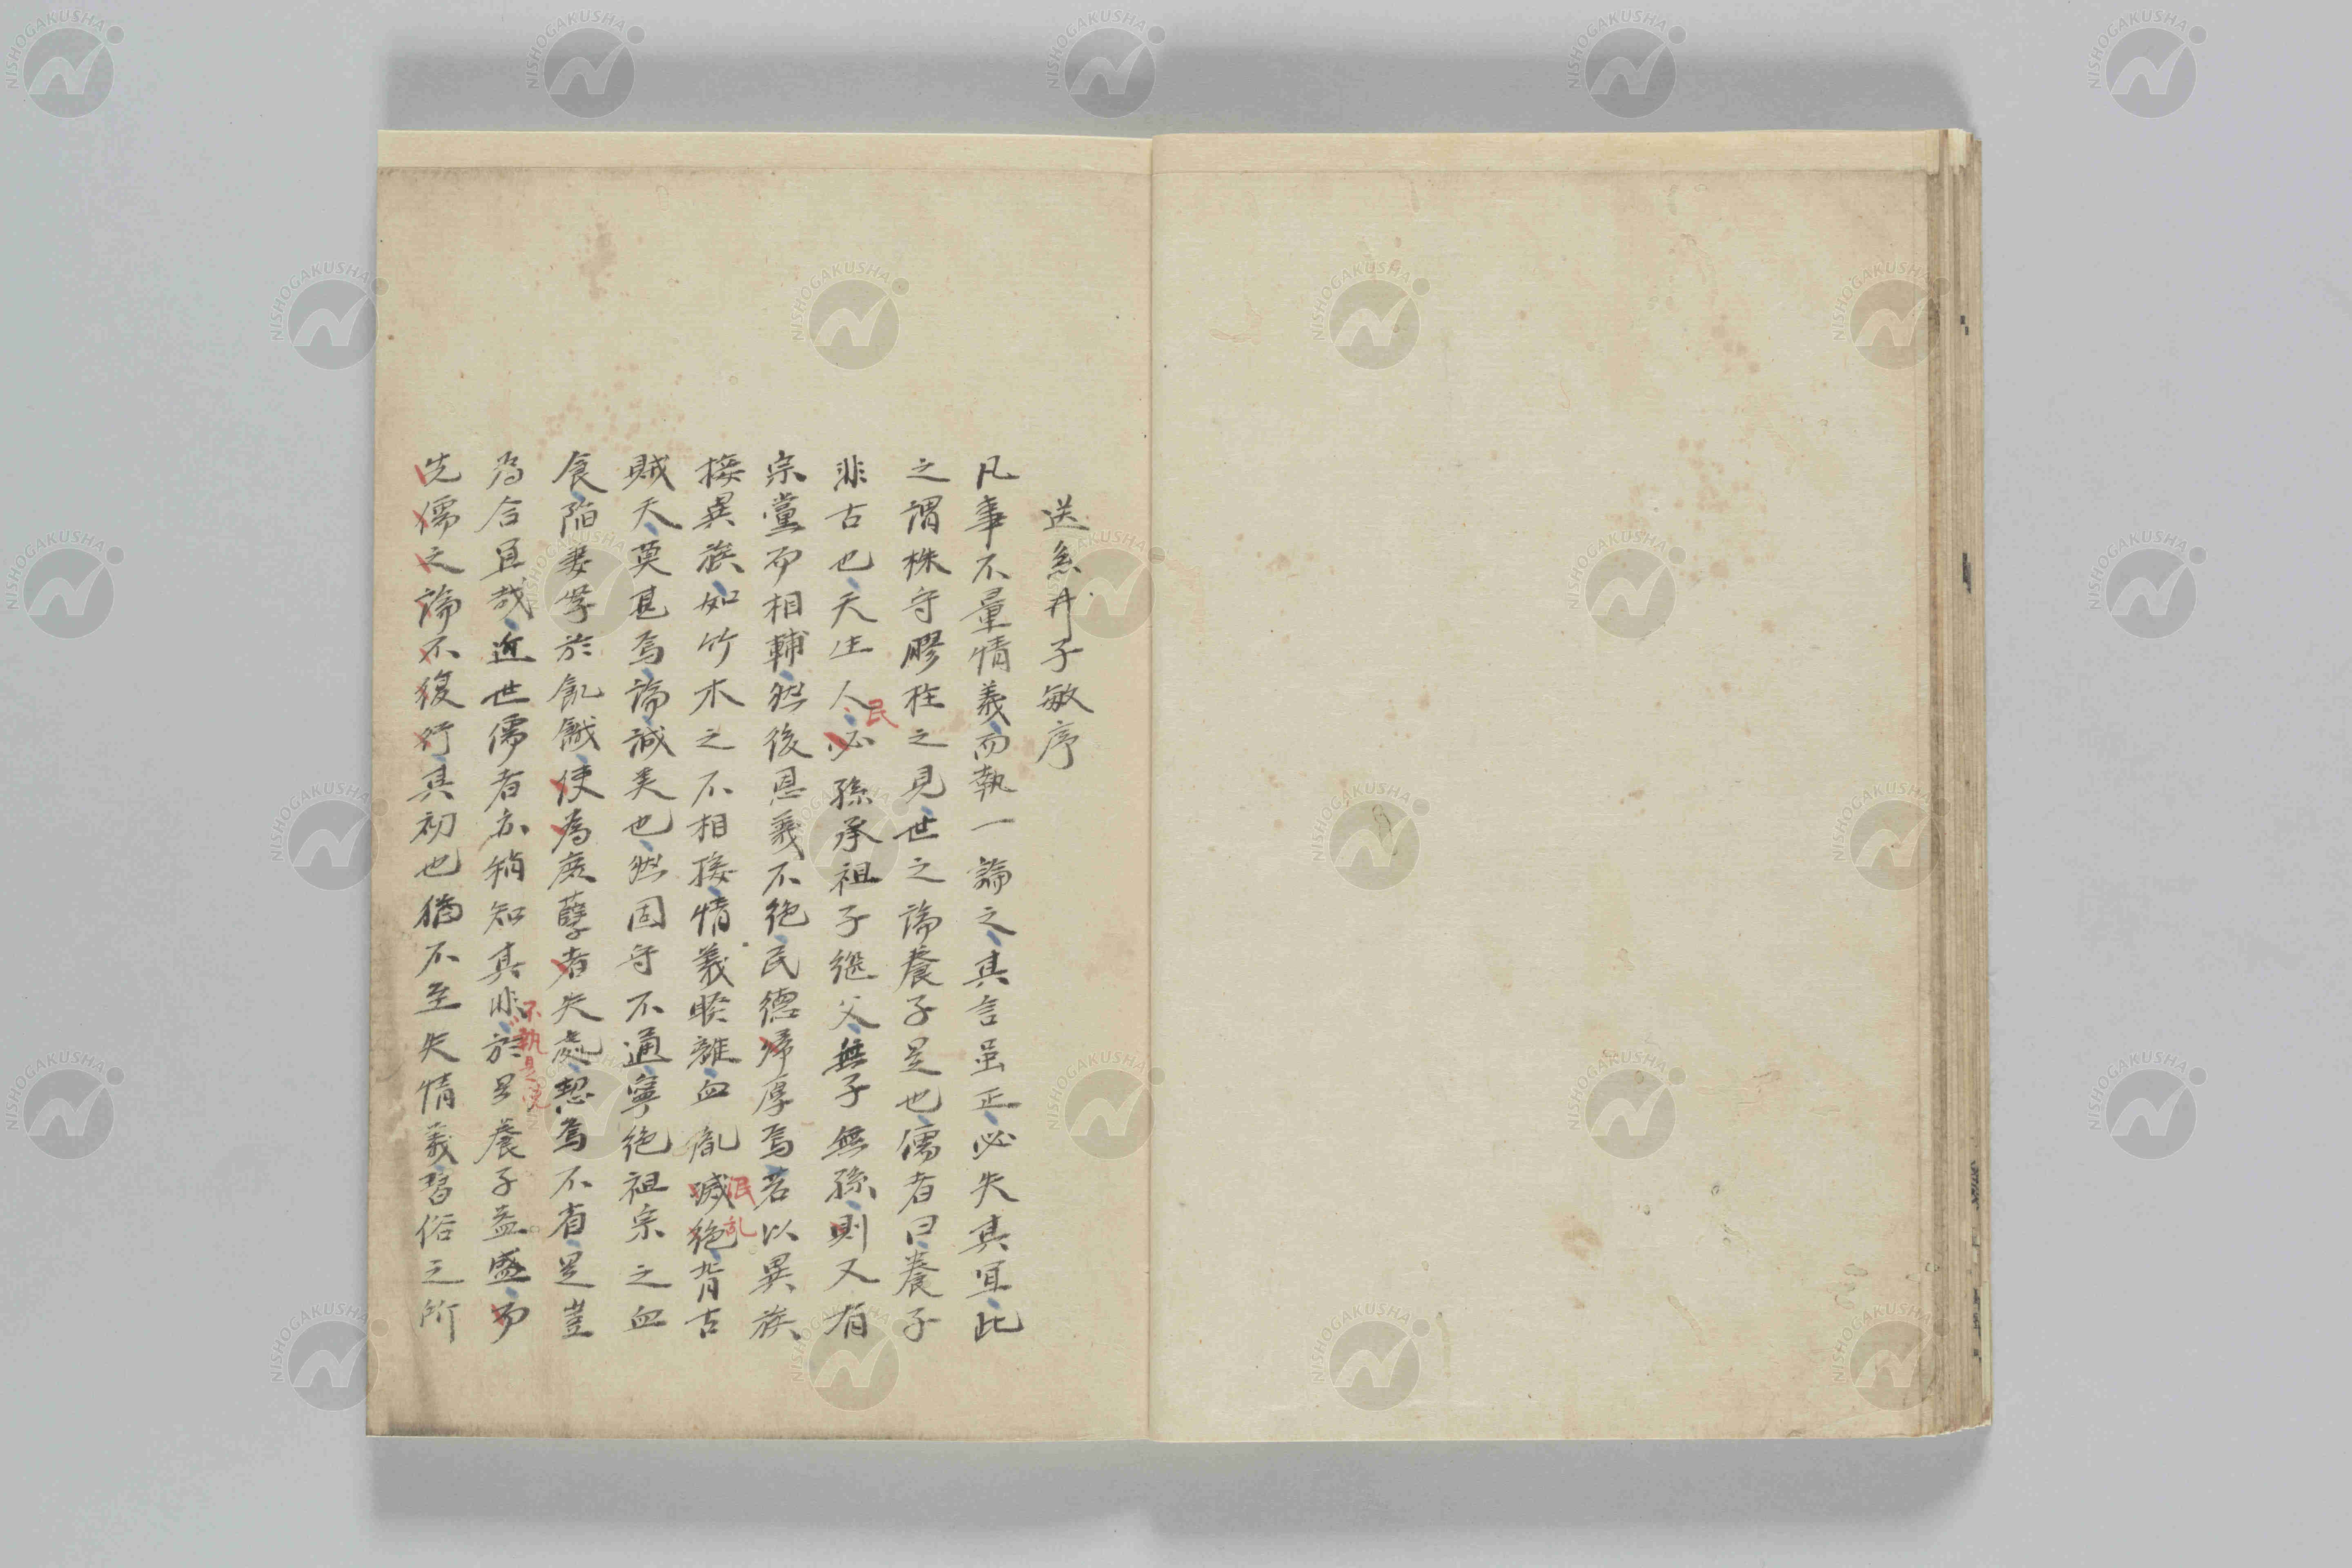 送糸井子敏序
凡事不量情義而執一論之其言虽正必失其宜此
之謂株守膠柱之見世之論養子是也儒者曰養子
非古也天生人必孫承祖子継父無子無孫則又有
民
宗黨而相輔然後恩義不絶民德帰厚焉若以異族
接異族如竹木之不相接情義睽離血胤滅絶背古
泯乱
賊天莫甚焉論誠美也然固守不通寧絶祖宗之血
食陷妻孥於飢餓使為庶孽者失處恝焉不省是豈
為合宜哉近世儒者亦稍知其非於是養子益盛而
不執是
先儒之論不復行其初也猶不至失情義習俗之所
NISHOGAKUSHA